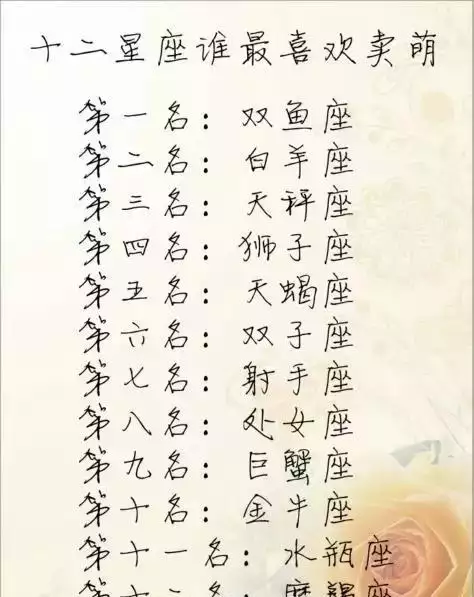 十二星座谁最喜欢卖萌
第一名：双鱼座
第二名：白羊座
第三名：天秤座
第四名：狮子座
第五名：天蝎座
第六名：双子座
第七名：射手座
第八名：处女座
第九名：巨蟹座
第十名：金牛座
第十一名：水瓶座
第十二名：摩羯座